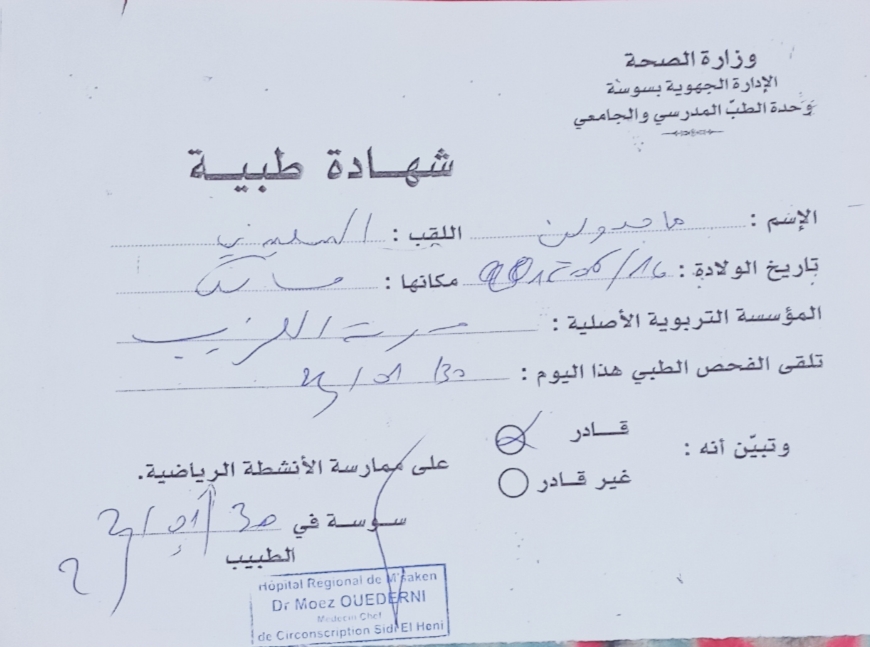 وزارة الصحة
الإدارة الجهوية بسوسة
وحدة الطبّ المدرسي والجامعي
شهادة طبية
الإسم : ماجدولين اللقب :
تاريخ الولادة : مكانها :
المؤسسة التربوية الأصلية : مدرسة
تلقى الفحص الطبي هذا اليوم : 30/01/23
وتبيّن أنه :
قادر
غير قادر
على ممارسة الأنشطة الرياضية.
سوسة في 30/01/23
الطبيب
Hôpital Regional de M'saken
Dr Moez OUEDERNI
Medecin Chef
de Circonscription Sidi El Heni